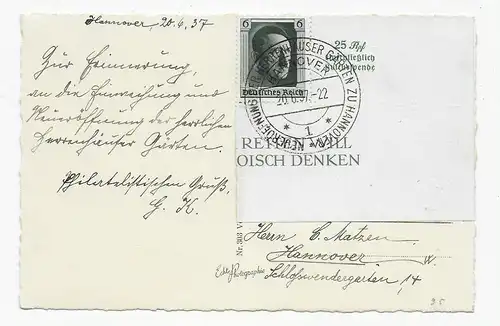 Hannover, 20.6.37
Zur Erinnerung,
an die Einweihung und
Neueröffnung der herrlichen
Herrenhäuser Gärten.
Philatelistischen Gruß,
G. K.
6 6
Deutsches Reich
25 Rpf
einschließlich
Kulturspende
HERRENHÄUSER GÄRTEN ZU HANNOVER
HANNOVER
20.6.37.-22
* 1 *
RETTEN WILL
OISCH DENKEN
Herrn C. Matzen.
Hannover W.
Schloßwendergarten, 14
Nr. 303
Echte Photographie